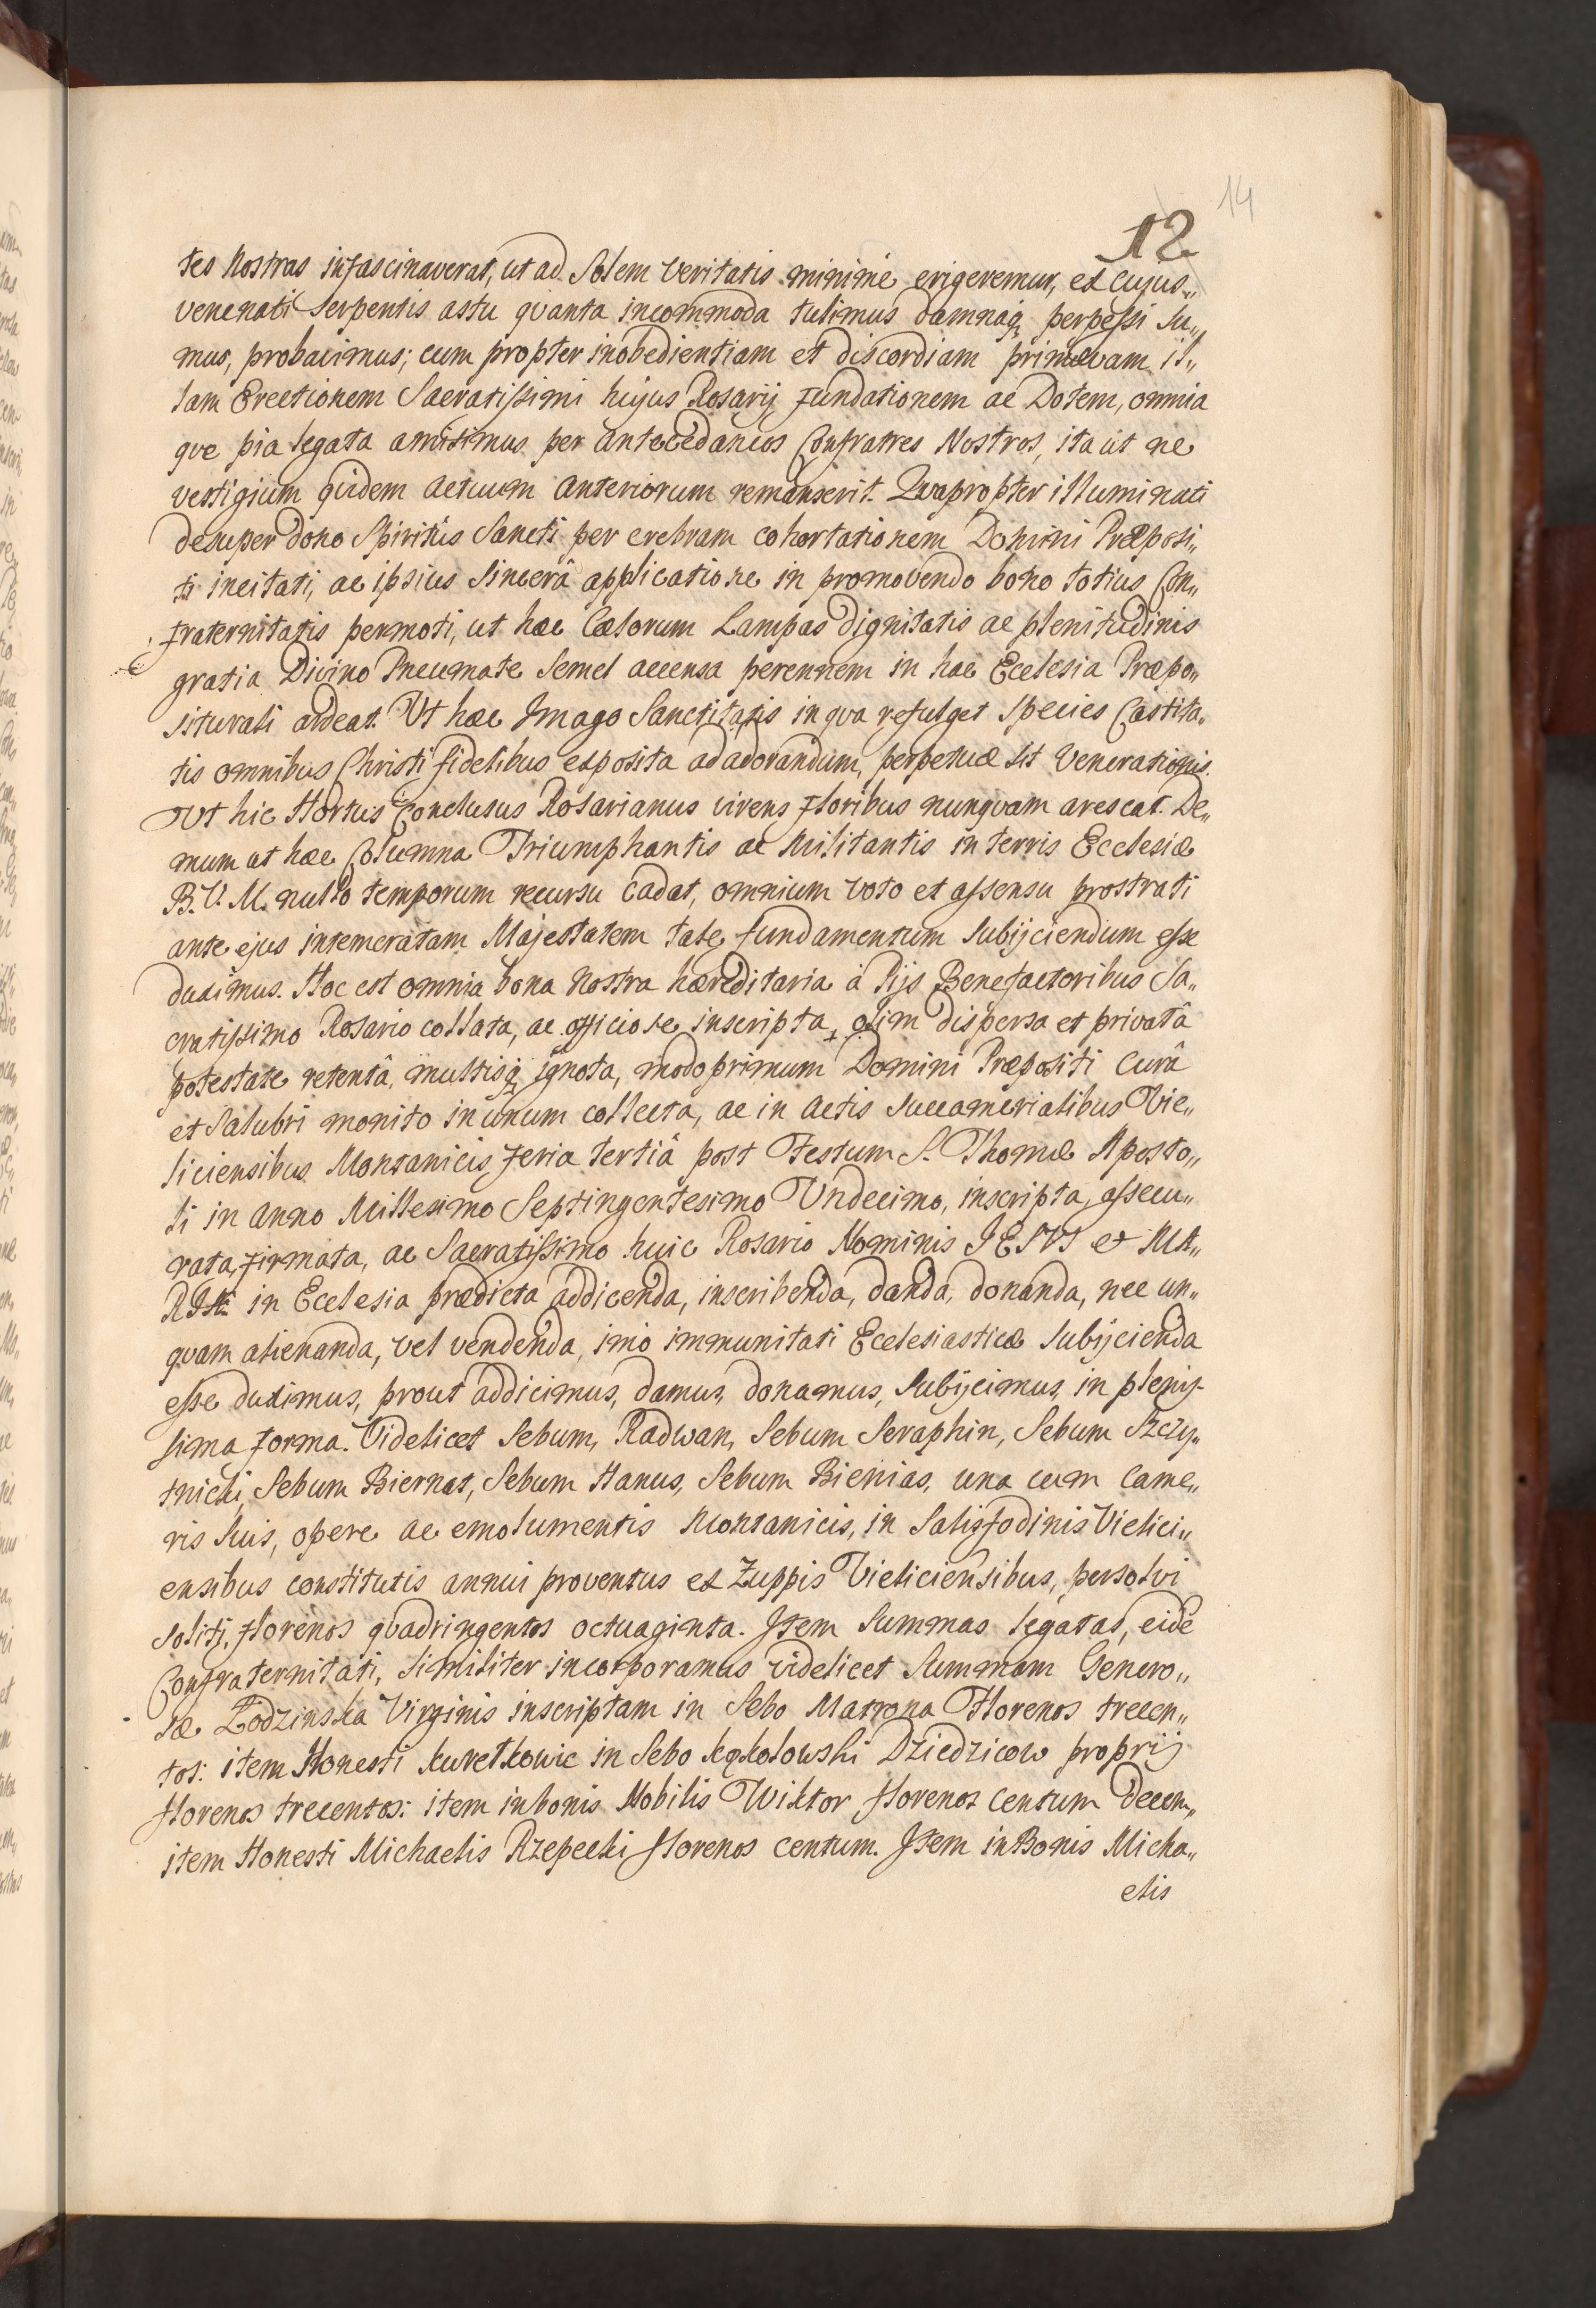 14
12
tes Nostras infascinaverat, ut ad Solem veritatis minimè erigeremur, ex cujus„
venenati Serpentis astu qvanta incommoda tulimus damnaq; perpessi su„
mus, probavimus; cum propter inobedientiam et discordiam primævam il„
lam Erectionem Sacratissimi hujus Rosarij fundationem ac Dotem, omnia
qve pia legata amisimus per antecedaneos Confratres Nostros, ita ut ne
vestigium qvidem actuum anteriorum remanserit. Qvapropter illuminati
desuper dono Spiritûs Sancti per crebram cohortationem Domini Præposi„
ti incitati, ac ipsius sincerâ applicatione in promovendo bono totius Con„
fraternitatis permoti, ut hæc Cælorum Lampas dignitatis ac plenitudinis
gratia Divino Pneumate semel accensa perennem in hac Ecclesia Præpo„
siturali ardeat. Ut hæc Imago Sanctitatis in qva refulget species Castita„
tis omnibus Christi fidelibus exposita ad adorandum, perpetuæ sit Venerationis.
Ut hic Hortus Conclusus Rosarianus virens floribus nunqvam arescat. De„
mum ut hæc Columna Triumphantis ac Militantis in terris Ecclesiæ
B. V. M. nullo temporum recursu cadat, omnium voto et assensu prostrati
ante ejus intemeratam Majestatem tale fundamentum subijciendum esse
duximus. Hoc est omnia bona Nostra hæreditaria à Pijs Benefactoribus Sa„
cratissimo Rosario collata, ac officiose inscripta, olim dispersa et privatâ
potestate retentâ, multisq; ignota, modo primum Domini Præpositi curâ
et salubri monito in unum collecta, ac in Actis Succamerialibus Vie„
liciensibus Montanicis feria tertiâ post Festum S. Thomæ Aposto„
li in Anno Millesimo Septingentesimo Undecimo, inscripta, assecu„
rata, firmata, ac Sacratissimo huic Rosario Nominis IESVS et MA„
RIÆ in Ecclesia prædicta addicenda, inscribenda, danda, donanda, nec un„
qvam alienanda, vel vendenda, imò immunitati Ecclesiasticæ subijcienda
esse duximus, prout addicimus, damus, donamus, subijcimus, in plenis-
sima forma. Videlicet Sebum, Radwan, Sebum Seraphin, Sebum Szczy„
tnicki, Sebum Biernat, Sebum Hanus, Sebum Bienias, una cum came„
ris suis, opere ac emolumentis Montanicis, in Salisfodinis Vielici„
ensibus constitutis annui proventus ex Zuppis Vieliciensibus, persolvi
soliti, florenos qvadringentos octuaginta. Item Summas legatas, eidē
Confraternitati, similiter incorporamus videlicet Summam Genero„
sæ Lodzinska Virginis inscriptam in Sebo Matrona Florenos trecen„
tos: item Honesti Kuretkowic in Sebo Kąkolowski Dziedzicow proprij
florenos trecentos: item in bonis Nobilis Wiktor florenos centum decem„
item Honesti Michaelis Rzepecki florenos centum. Item in Bonis Micha„
elis